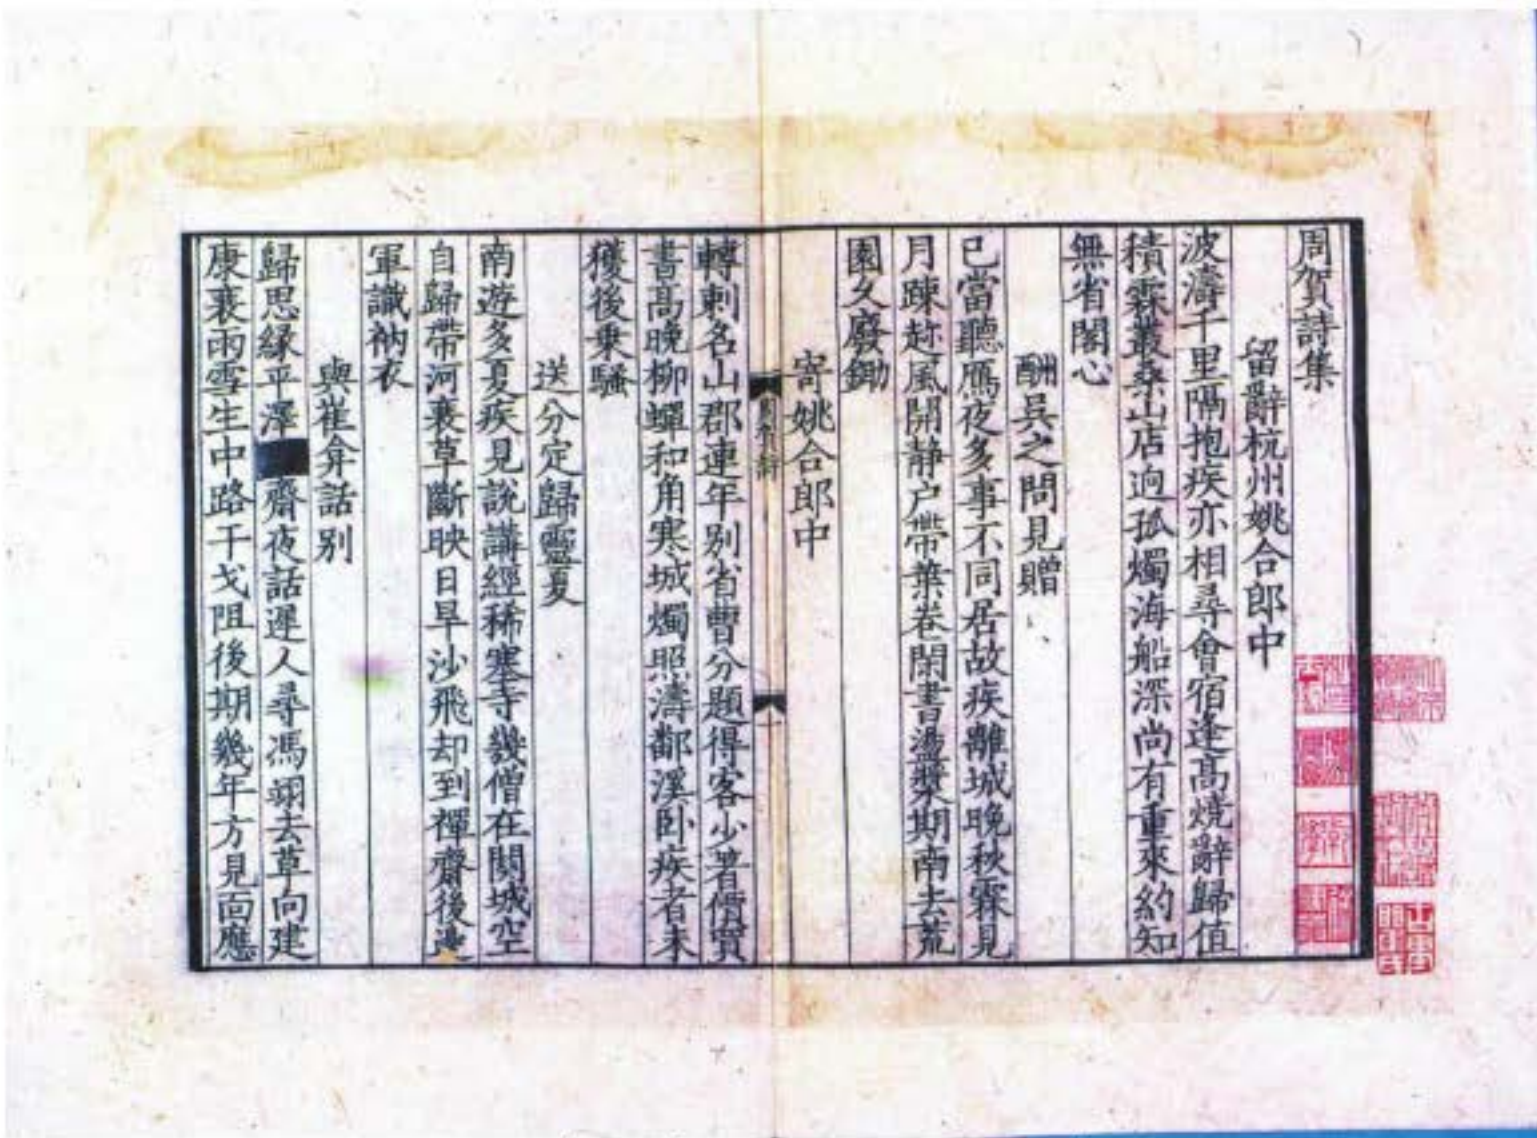 周賀詩集
留辭杭州姚合郎中
波濤千里隔抱疾亦相尋會宿逢高燒辭歸值
積霖叢桑山店迥孤燭海船深尚有重來約知
無省閣心
酬吳之問見贈
已當聽鴈夜多事不同居故疾離城晚秋霖見
月踈趂風開静户帶葉卷閑書盪槳期南去荒
園久廢鋤
寄姚合郎中
周賀詩
一
轉刺名山郡連年别省曹分題得客少著價買
書高晚柳蟬和角寒城燭照濤鄱溪卧疾者未
獲後乗騷
送分定歸靈夏
南遊多夏疾見說講經稀塞寺幾僧在關城空
自歸帶河衰草斷映日旱沙飛却到禪齋後邊
軍識衲衣
與崔弇話别
歸思緣平澤齋夜話遲人尋馮翊去草向建
康衰雨雪生中路干戈阻後期幾年方見面應